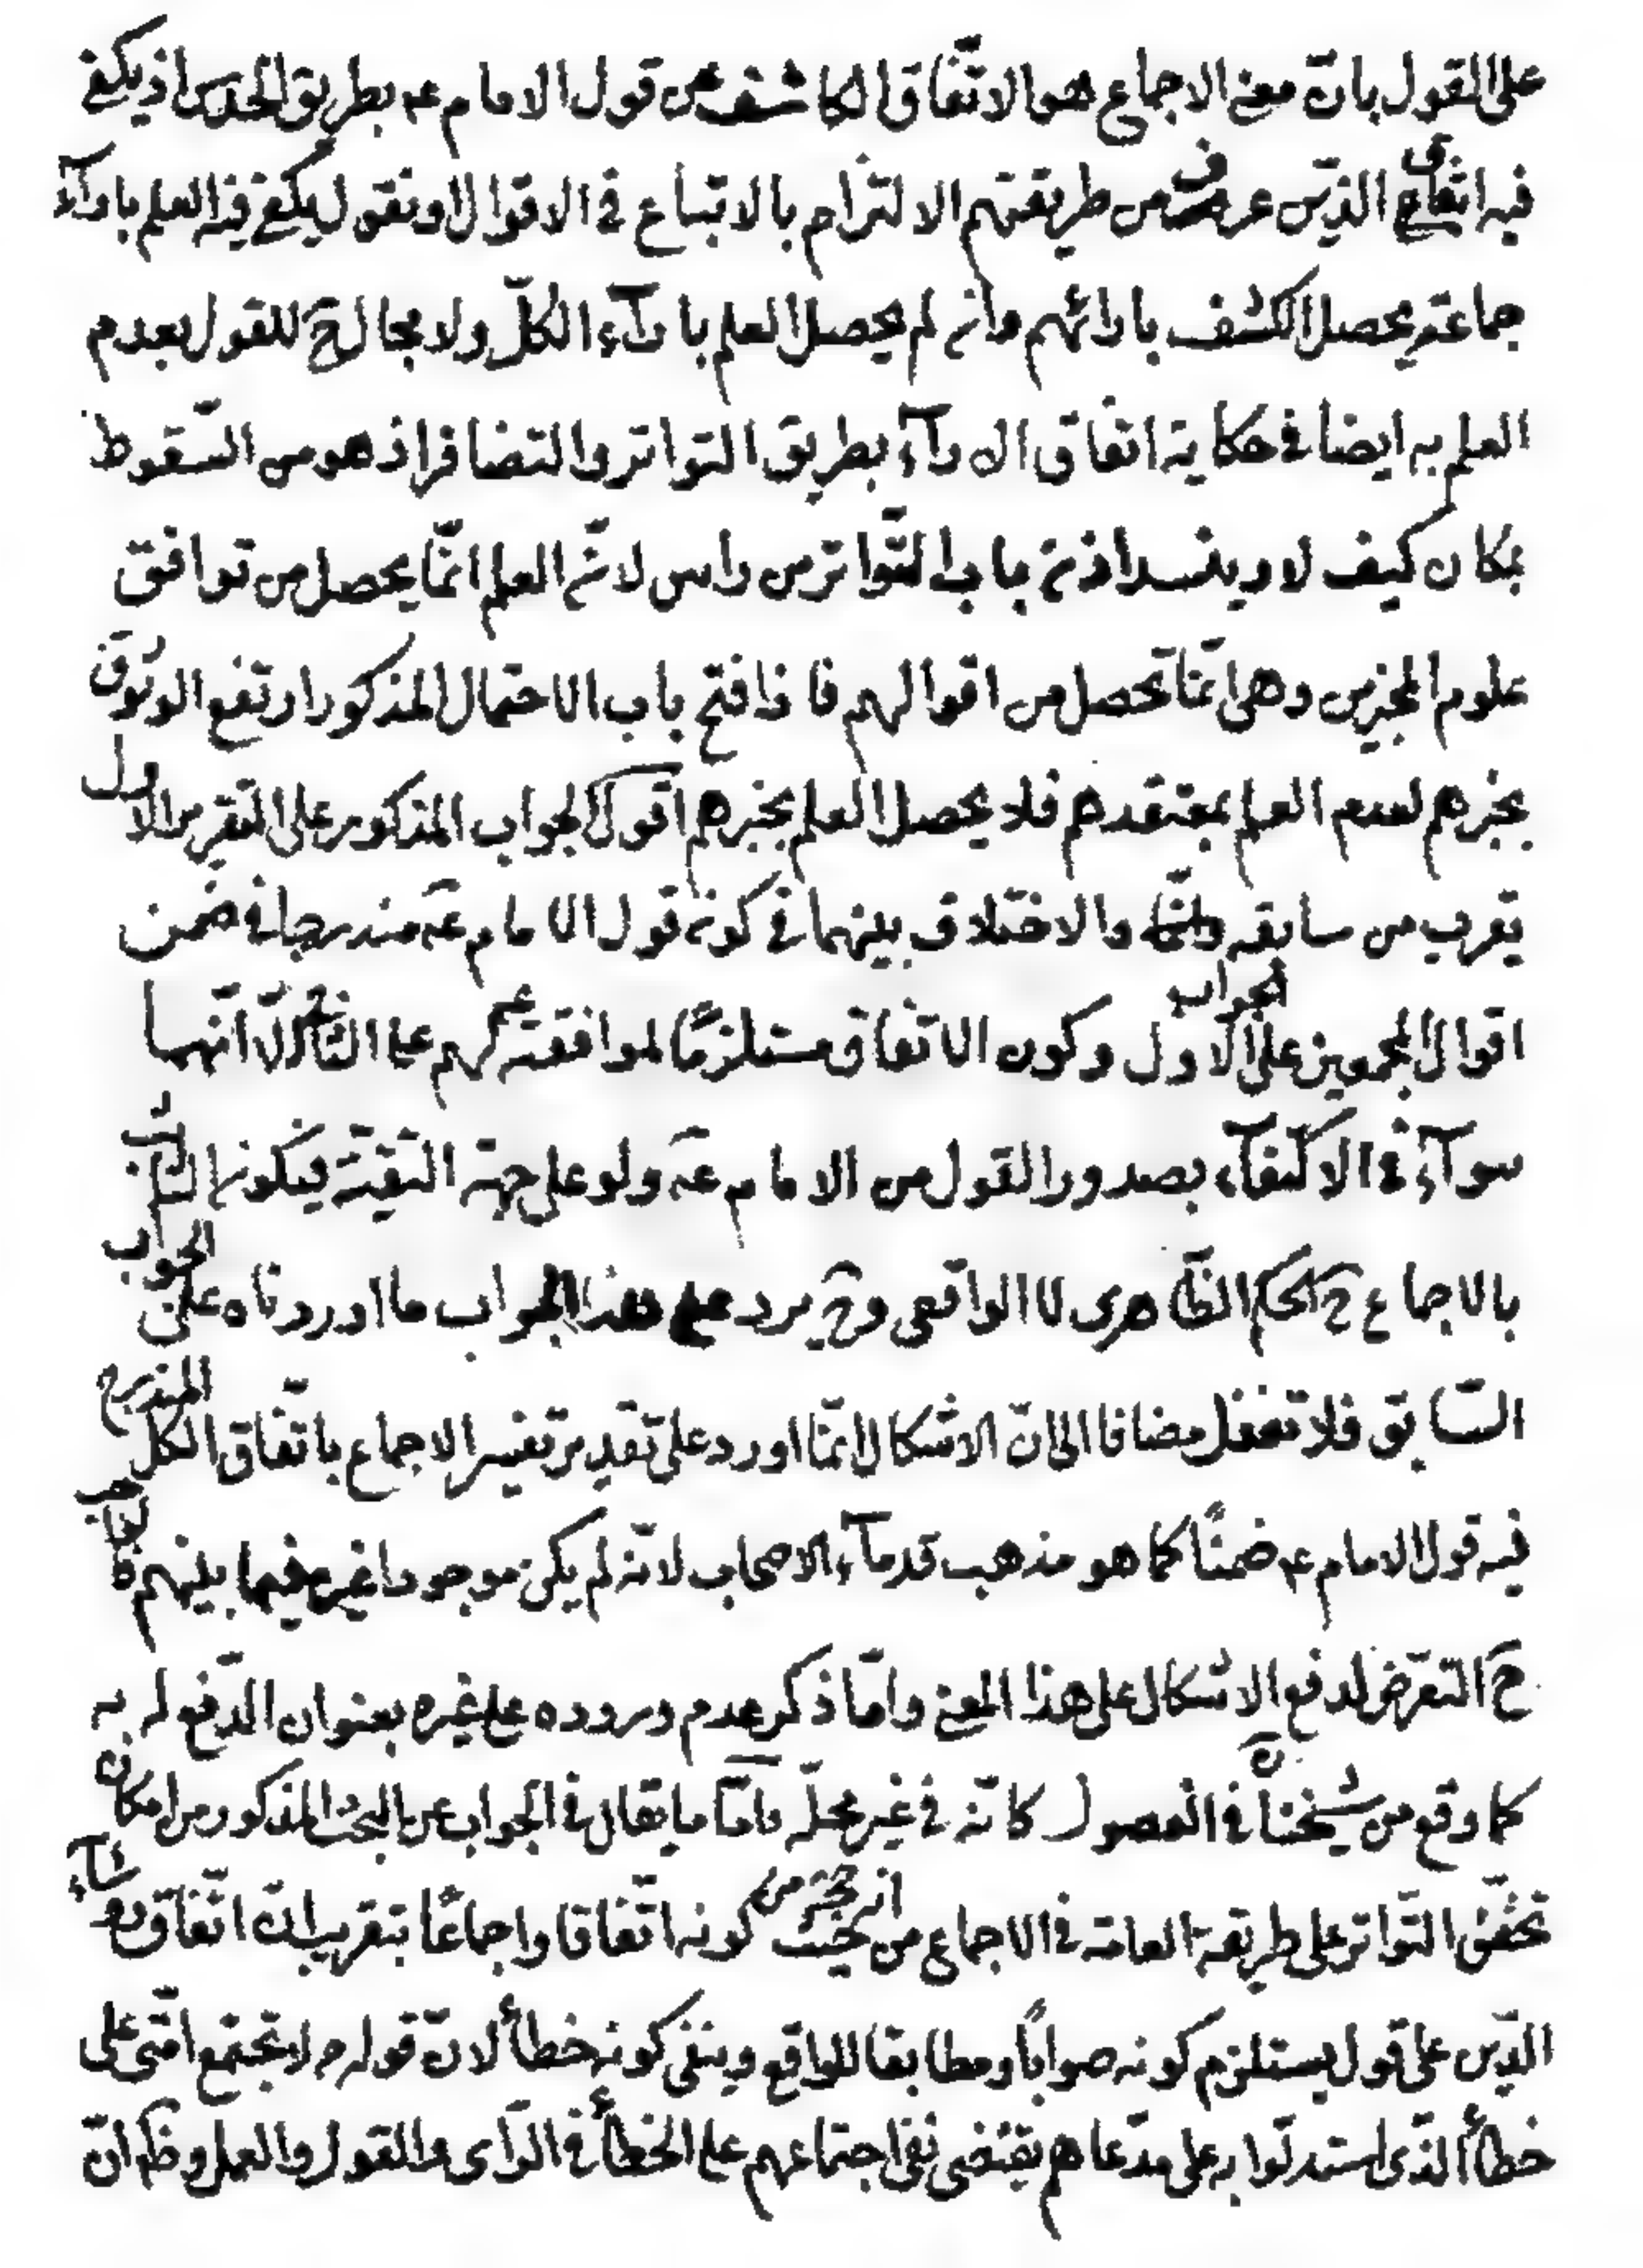 على القول بانّ معنى الاجماع هو الاتّفاق الكاشف عن قول الامام عه بطريق الحدس اذ يكفى
فيه اتفاق الذين عرف من طريقتهم الالتزام بالاتباع فى الاقوال او نقول يكفى فيه العلم باراۤء
جماعة يحصل الكشف باراۤئهم وان لم يحصل العلم باراۤء الكلّ ولا مجال حَ للقول بعدم
العلم به ايضا فى حكاية اتفاق الاراۤء بطريق التواتر والتضافر اذ هو من السّقوط
بمكان كيف لا وينسد اذن باب التّواتر من راس لانّ العلم انّما يحصل من توافق
علوم المخبرين وهى انّما تحصل من اقوالهم فاذا فتح باب الاحتمال المذكور ارتفع الوثوق
بخبرهم لعدم العلم بمعتقدهم فلا يحصل العلم بخبرهم اقول الجواب المذكور على التقرير الاول
يقرب من سابقه والاختلاف بينهما فى كون قول الامام عَه مندرجا فى ضمن
اقوال المجمعين على الجواب الاول وكون الاتّفاق مستلزمًا لموافقته عه لهم على الثانى الّا انّهما
سواۤء فى الاكتفاۤء بصدور القول من الامام عَه ولو على جهة التقيّة فيكون الثابت
بالاجماع ح الحكم الظاهرى لا الواقعى وح يرد على هذا الجواب ما اوردناه على الجواب
السّابق فلا تغفل مضافا الى انّ الاشكال انّما اورد على تقدير تفسير الاجماع باتّفاق الكل المندرج
فيه قول الامام عه ضمنًا كما هو مذهب قدماۤء الاصحاب لانّه لم يكن موجودا غيره فيما بينهم فالواجب
حَ التعرّض لدفع الاشكال على هذا المعنى وامّا ذكر عدم وروده على غيره بعنوان الدّفع له به
كما وقع من شيخنا فى الفصول كانّه فى غير محلّه وامّا ما يقال فى الجواب عن البحث المذكور من امكان
تحقّق التّواتر على طريقة العامّة فى الاجماع من حيث كونه اتّفاقا واجماعًا بتقريب انّ اتّفاق رؤساۤء
الدّين على قول يستلزم كونه صوابًا ومطابقا للواقع وينفى كونه خطأ لانّ قوله ص لا تجتمع امّتى على
خطأ الّذى استدلّوا به على مدّعاهم يقتضى نفى اجتماعهم على الخطأ فى الرّاى والقول والعمل وظ انّ